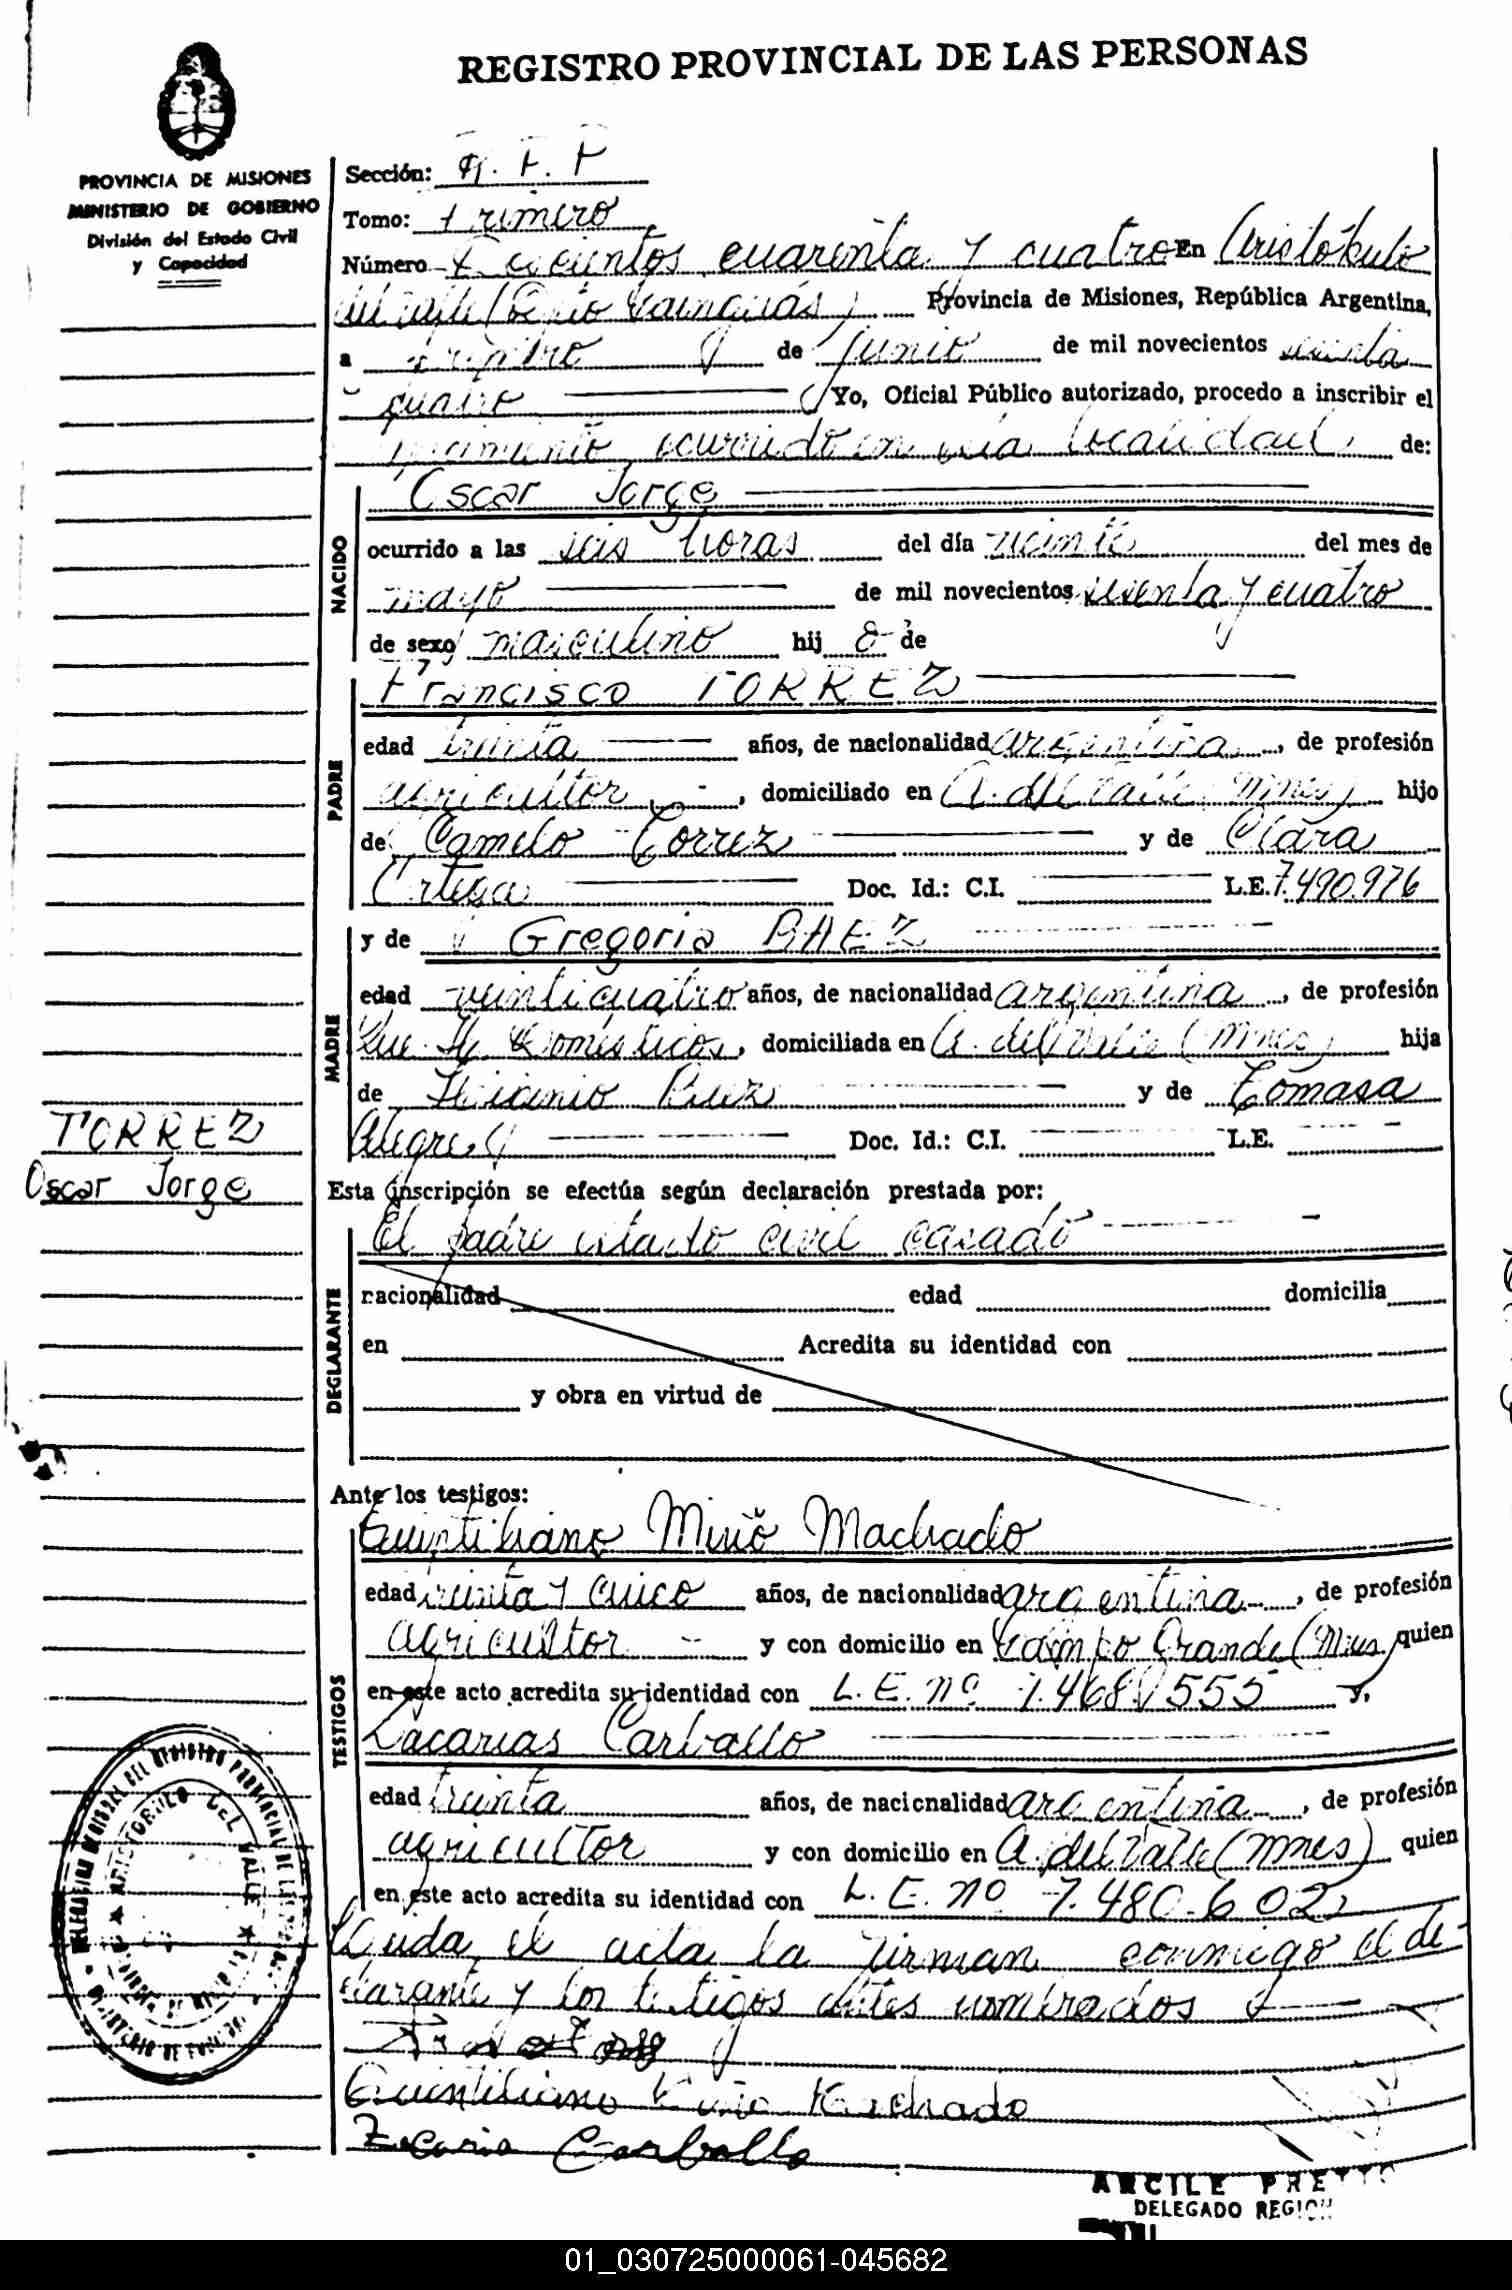 REGISTRO PROVINCIAL DE LAS PERSONAS
PROVINCIA DE MISIONES
MINISTERIO DE GOBIERNO
División del Estado Civil
y Capacidad
Sección:
Tomo: Primero
Número cuarenta y cuatro En Aristóbulo
del Valle Provincia de Misiones, República Argentina,
a de junio de mil novecientos sesenta
cuatro Yo, Oficial Público autorizado, procedo a inscribir el
nacimiento ocurrido en localidad de:
NACIDO
Oscar Jorge
ocurrido a las seis horas del día veinte del mes de
mayo de mil novecientos sesenta y cuatro
de sexo masculino hij o de
PADRE
Francisco TORREZ
edad treinta años, de nacionalidad argentina, de profesión
agricultor, domiciliado en A. del Valle (Mnes) hijo
de Camelo Torrez y de Clara
Ortega Doc. Id.: C.I. L.E. 7.490.976
MADRE
y de Gregoria BAEZ
edad veinticuatro años, de nacionalidad argentina, de profesión
Que. Domésticos, domiciliada en A. del Valle (Mnes) hija
de y de Tomasa
Alegre Doc. Id.: C.I. L.E.
TORREZ
Oscar Jorge
Esta inscripción se efectúa según declaración prestada por:
DECLARANTE
El padre estado civil casado
nacionalidad edad domicilia
en Acredita su identidad con
y obra en virtud de
Ante los testigos:
TESTIGOS
Quintiliano Miño Machado
edad treinta y cinco años, de nacionalidad argentina, de profesión
agricultor y con domicilio en Campo Grande (Mnes) quien
en este acto acredita su identidad con L. E. nº 7.468.555 y,
Zacarias Carballo
edad treinta años, de nacionalidad argentina, de profesión
agricultor y con domicilio en A. del Valle (Mnes) quien
en este acto acredita su identidad con L. E. nº 7.480.602
Leida el acta la firman conmigo el de-
clarante y los testigos antes nombrados
Quintiliano Miño Machado
Zacaria Carballo
DELEGADO REGION
01_030725000061-045682